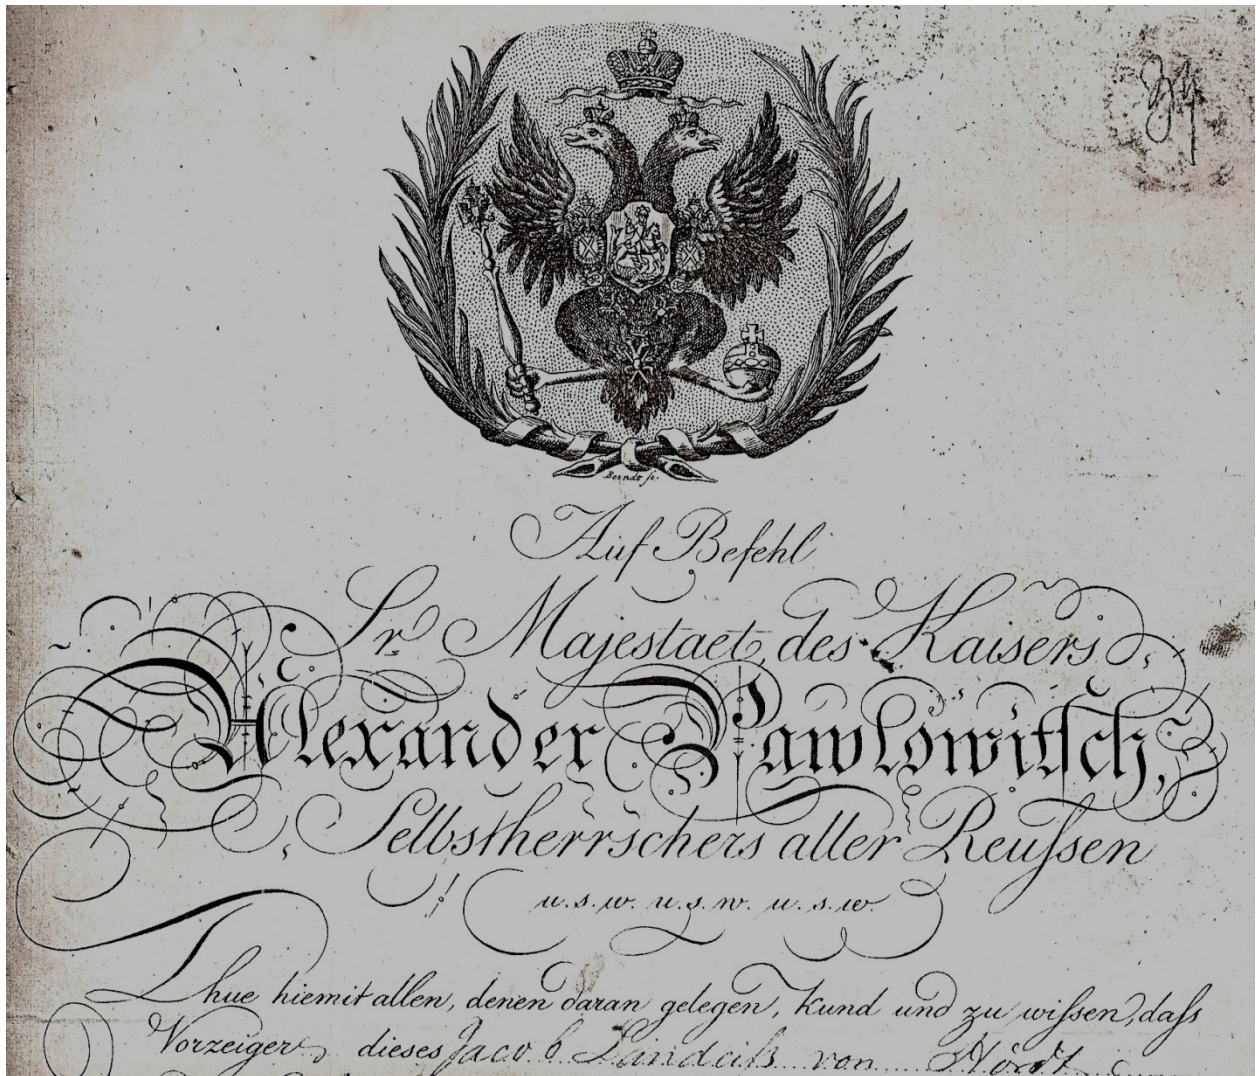 Berndt sc.
Auf Befehl
Sr. Majestaet des Kaisers
Alexander Pawlowitsch,
Selbstherrschers aller Reuſsen
u. s. w. u. s. w. u. s. w.
Thue hiemit allen, denen daran gelegen, kund und zu wiſsen, daſs
Vorzeiger dieses Jacob von Hördt